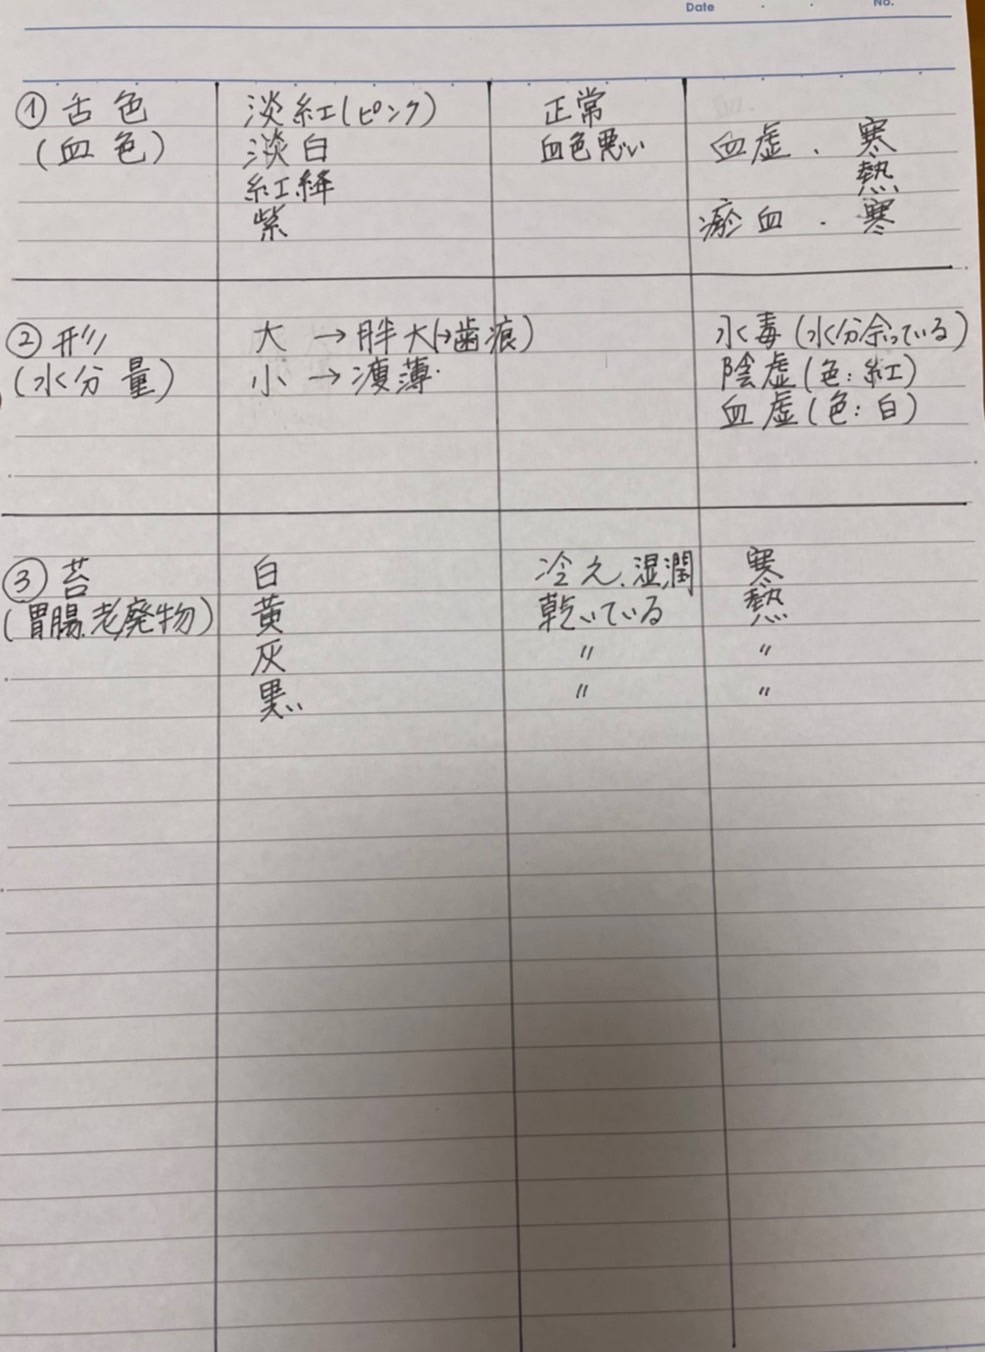 Date No.
① 舌色 淡紅(ピンク) 正常
(血色) 淡白 血色悪い 血虚、寒
紅絳 熱
紫 瘀血、寒
② 形 大 → 胖大(→歯痕) 水毒(水分余っている)
(水分量) 小 → 痩薄 陰虚(色:紅)
血虚(色:白)
③ 苔 白 冷え、湿潤 寒
(胃腸、老廃物) 黄 乾いている 熱
灰 〃 〃
黒 〃 〃